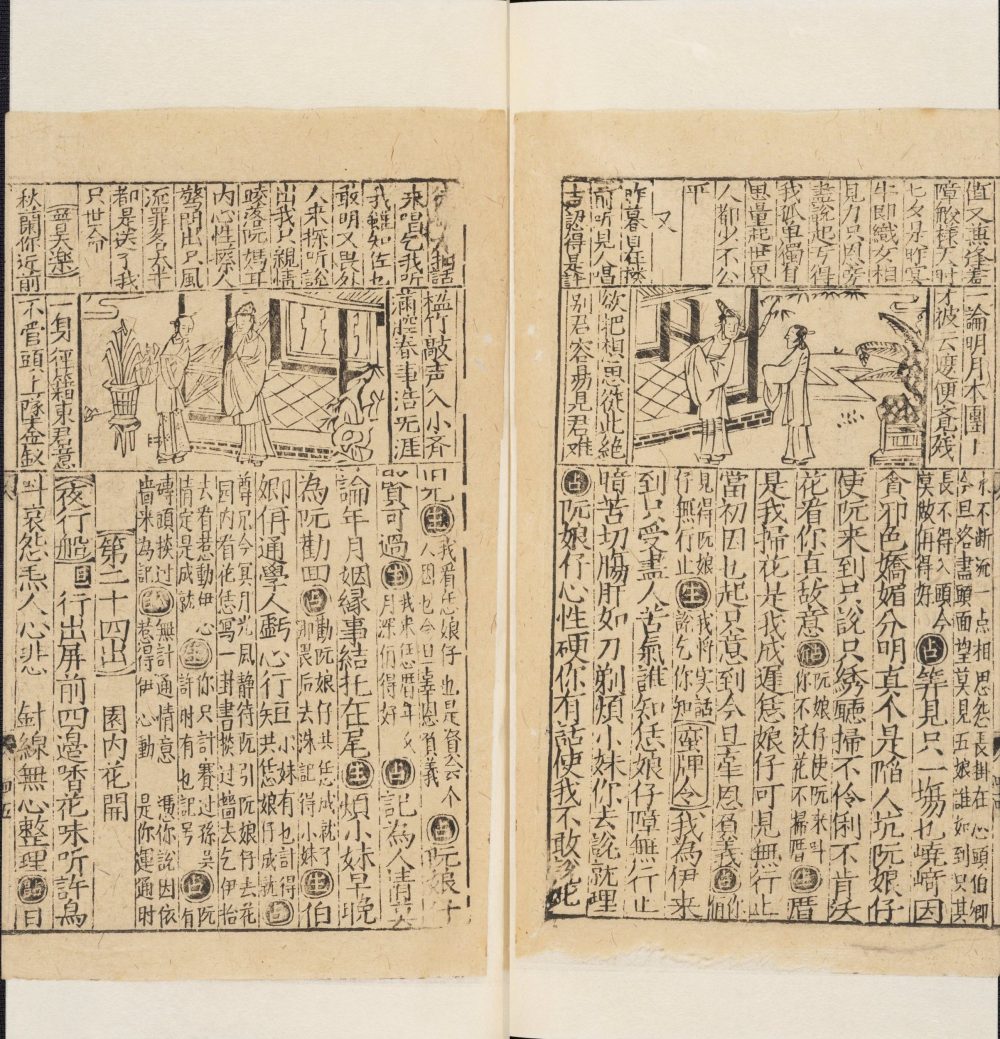 值又兼逢着
障般樣天時
七夕是昨冥
牛郎織女相
見力只因旁
盡説起亏得
我孤單獨有
思量起世界
人都少不公
平
又
昨暮日在樓
前听見人唱
声認得是許
一論明月不團卜
才彼云遮便竟残
欲把相思從此絶
别君容易見君难
永不断流一点相思怨長掛在心頭伯卿
今旦洛盡頭面望莫見五娘誰知到只其
長不得入頭今
莫散侢得好占筭見只一塲也嶢崎因
貪邪色嬌媚分明真不是陷人坑阮娘仔
使阮来到只説只綉㕔掃不伶俐不肯沃
花看你真故意占阮娘仔使阮来叫
你不沃花不掃厝生厝
是我掃花是我成遲恁娘仔可見無行止
當初因乜起只意到今旦辜恩負義占伯你
見得阮娘
仔無行止生我将実話
説乞你知蛮牌令我為伊来
到只受盡人苦氣誰知恁娘仔障無行止
暗苦切腸肝如刀剃煩小妹你去説就理
占阮娘仔心性硬你有話使我不敢説此
来唱乞我听
我雖知佐乜
敢明又畏外
人来探听説
出我只親情
賺落阮媽耳
内心性際人
驚閗出只風
流罪名大半
都是送了我
只世命
普天樂
秋蘭你近前
楹竹敲声入小斉
滿腔春事浩旡涯
一身徑藉東君意
不管頭上墜金釵
旧兄生我看恁娘仔也是資云个
人因乜今旦辜恩負義占阮娘仔
賢可過生我来恁厝年久
月深侢得好占記為人情去
論年月姻縁事結托在尾生煩小妹早晚
為阮勸回占勸阮娘仔共恁成就了
即畏后去洙記得小妹生伯
卿侢通學人虧心行短共恁娘仔成就占
小妹有乜計得
尊兄今冥月光風静待阮引阮娘仔去花
园内看花恁寫一封書掞过墻去乞伊拾
去看惹動伊心
情定是成就生你只計賽过孫吳
許時有乜記号占有阮
磚頭掞过
墻来為記生無計通情意
惹得伊心動馮你説因依
是你運通時
第二十四出
園内花開
夜行船旦行出屏前四邉香花味听許鳥
叫哀怨炁人心悲
針線無心整理占日